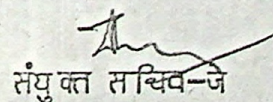 संयुक्त सचिव-जे